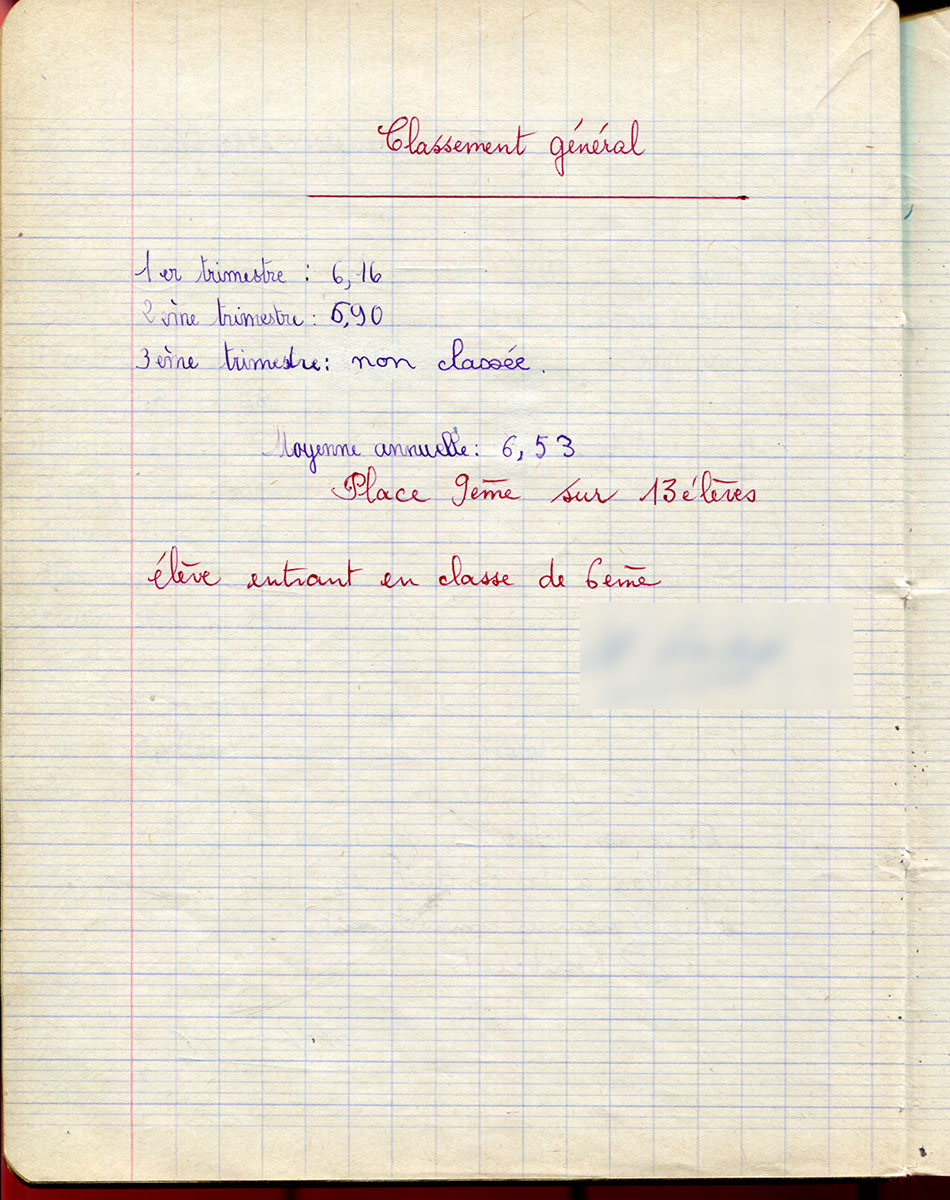 Classement général
1er trimestre : 6,16
2ème trimestre : 6,90
3ème trimestre : non classée.
Moyenne annuelle : 6,53
Place 9ème sur 13 élèves
élève entrant en classe de 6ème